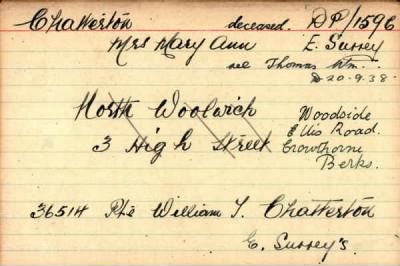 Chatterton deceased. DP/1596
Mrs Mary Ann E. Surrey
see Thomas Wm.
D 20-9-38.
North Woolwich Woodside
Ellis Road.
3 High Street Crowthorne
Berks.
36514 Pte William T. Chatterton
E. Surrey's